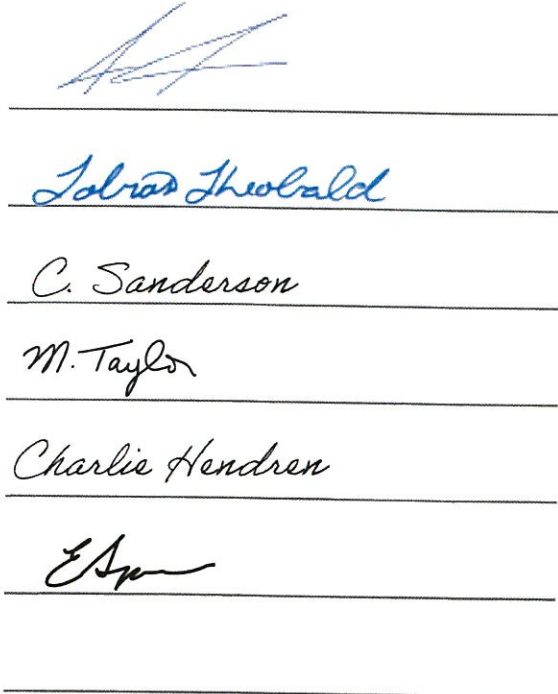 Tobias Theobald
C. Sanderson
M. Taylor
Charlie Hendren